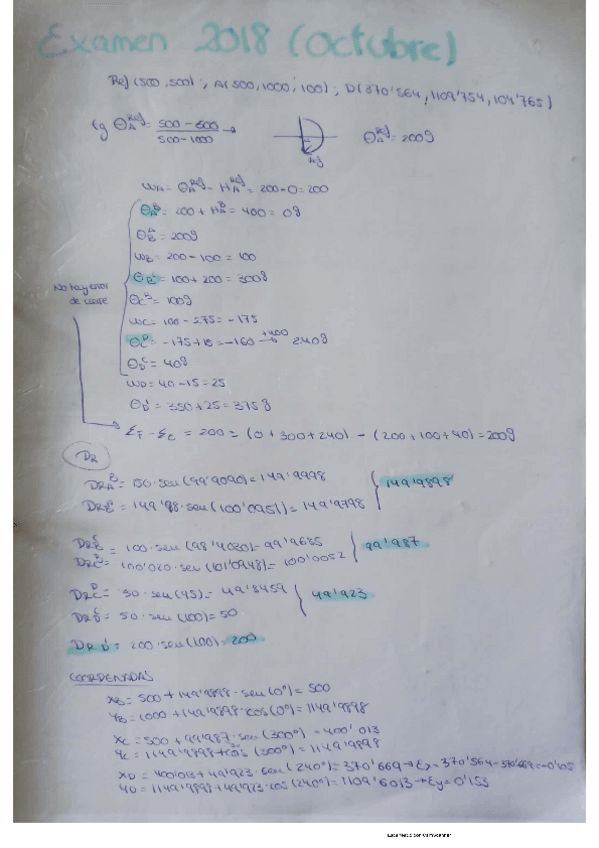 Examen 2018 (Octubre)
Ref (500,500) ; A(500,1000,100) ; D(370'564, 1109'754, 104'765)
tg θ_A^Ref = 500-500 / 500-1000 →
θ_A^Ref = 200g
Ref
W_A = θ_A^Ref - H_A^Ref = 200-0 = 200
θ_A^B = 200 + H_A^B = 400 = 0g
θ_B^A = 200g
W_B = 200-100 = 100
θ_B^C = 100+200 = 300g
No hay error de cierre
θ_C^B = 100g
W_C = 100-275 = -175
θ_C^D = -175+15 = -160 +400→ 240g
θ_D^C = 40g
W_D = 40-15 = 25
θ_D^1 = 350+25 = 375g
Σ_F - Σ_C = 200 = (0+300+240) - (200+100+40) = 200g
DR
DR_A^B = 150·sen(99'9090) = 149'9998
DR_B^A = 149'98·sen(100'0951) = 149'9798
149'9898
DR_B^C = 100·sen(98'4030) = 99'9685
DR_C^B = 100'020·sen(101'0948) = 100'0052
99'987
DR_C^D = 50·sen(95) = 49'8459
DR_D^C = 50·sen(100) = 50
49'923
DR_D^1 = 200·sen(100) = 200
COORDENADAS
X_B = 500+149'9898·sen(0°) = 500
Y_B = 1000+149'9898·cos(0°) = 1149'9898
X_C = 500+99'987·sen(300°) = 400'013
Y_C = 1149'9898+cos(300°) = 1149'9898
X_D = 400'013+49'923·sen(240°) = 370'669 → Ex = 370'564-370'669 = -0'105
Y_D = 1149'9898+49'923·cos(240°) = 1109'6013 → Ey = 0'153